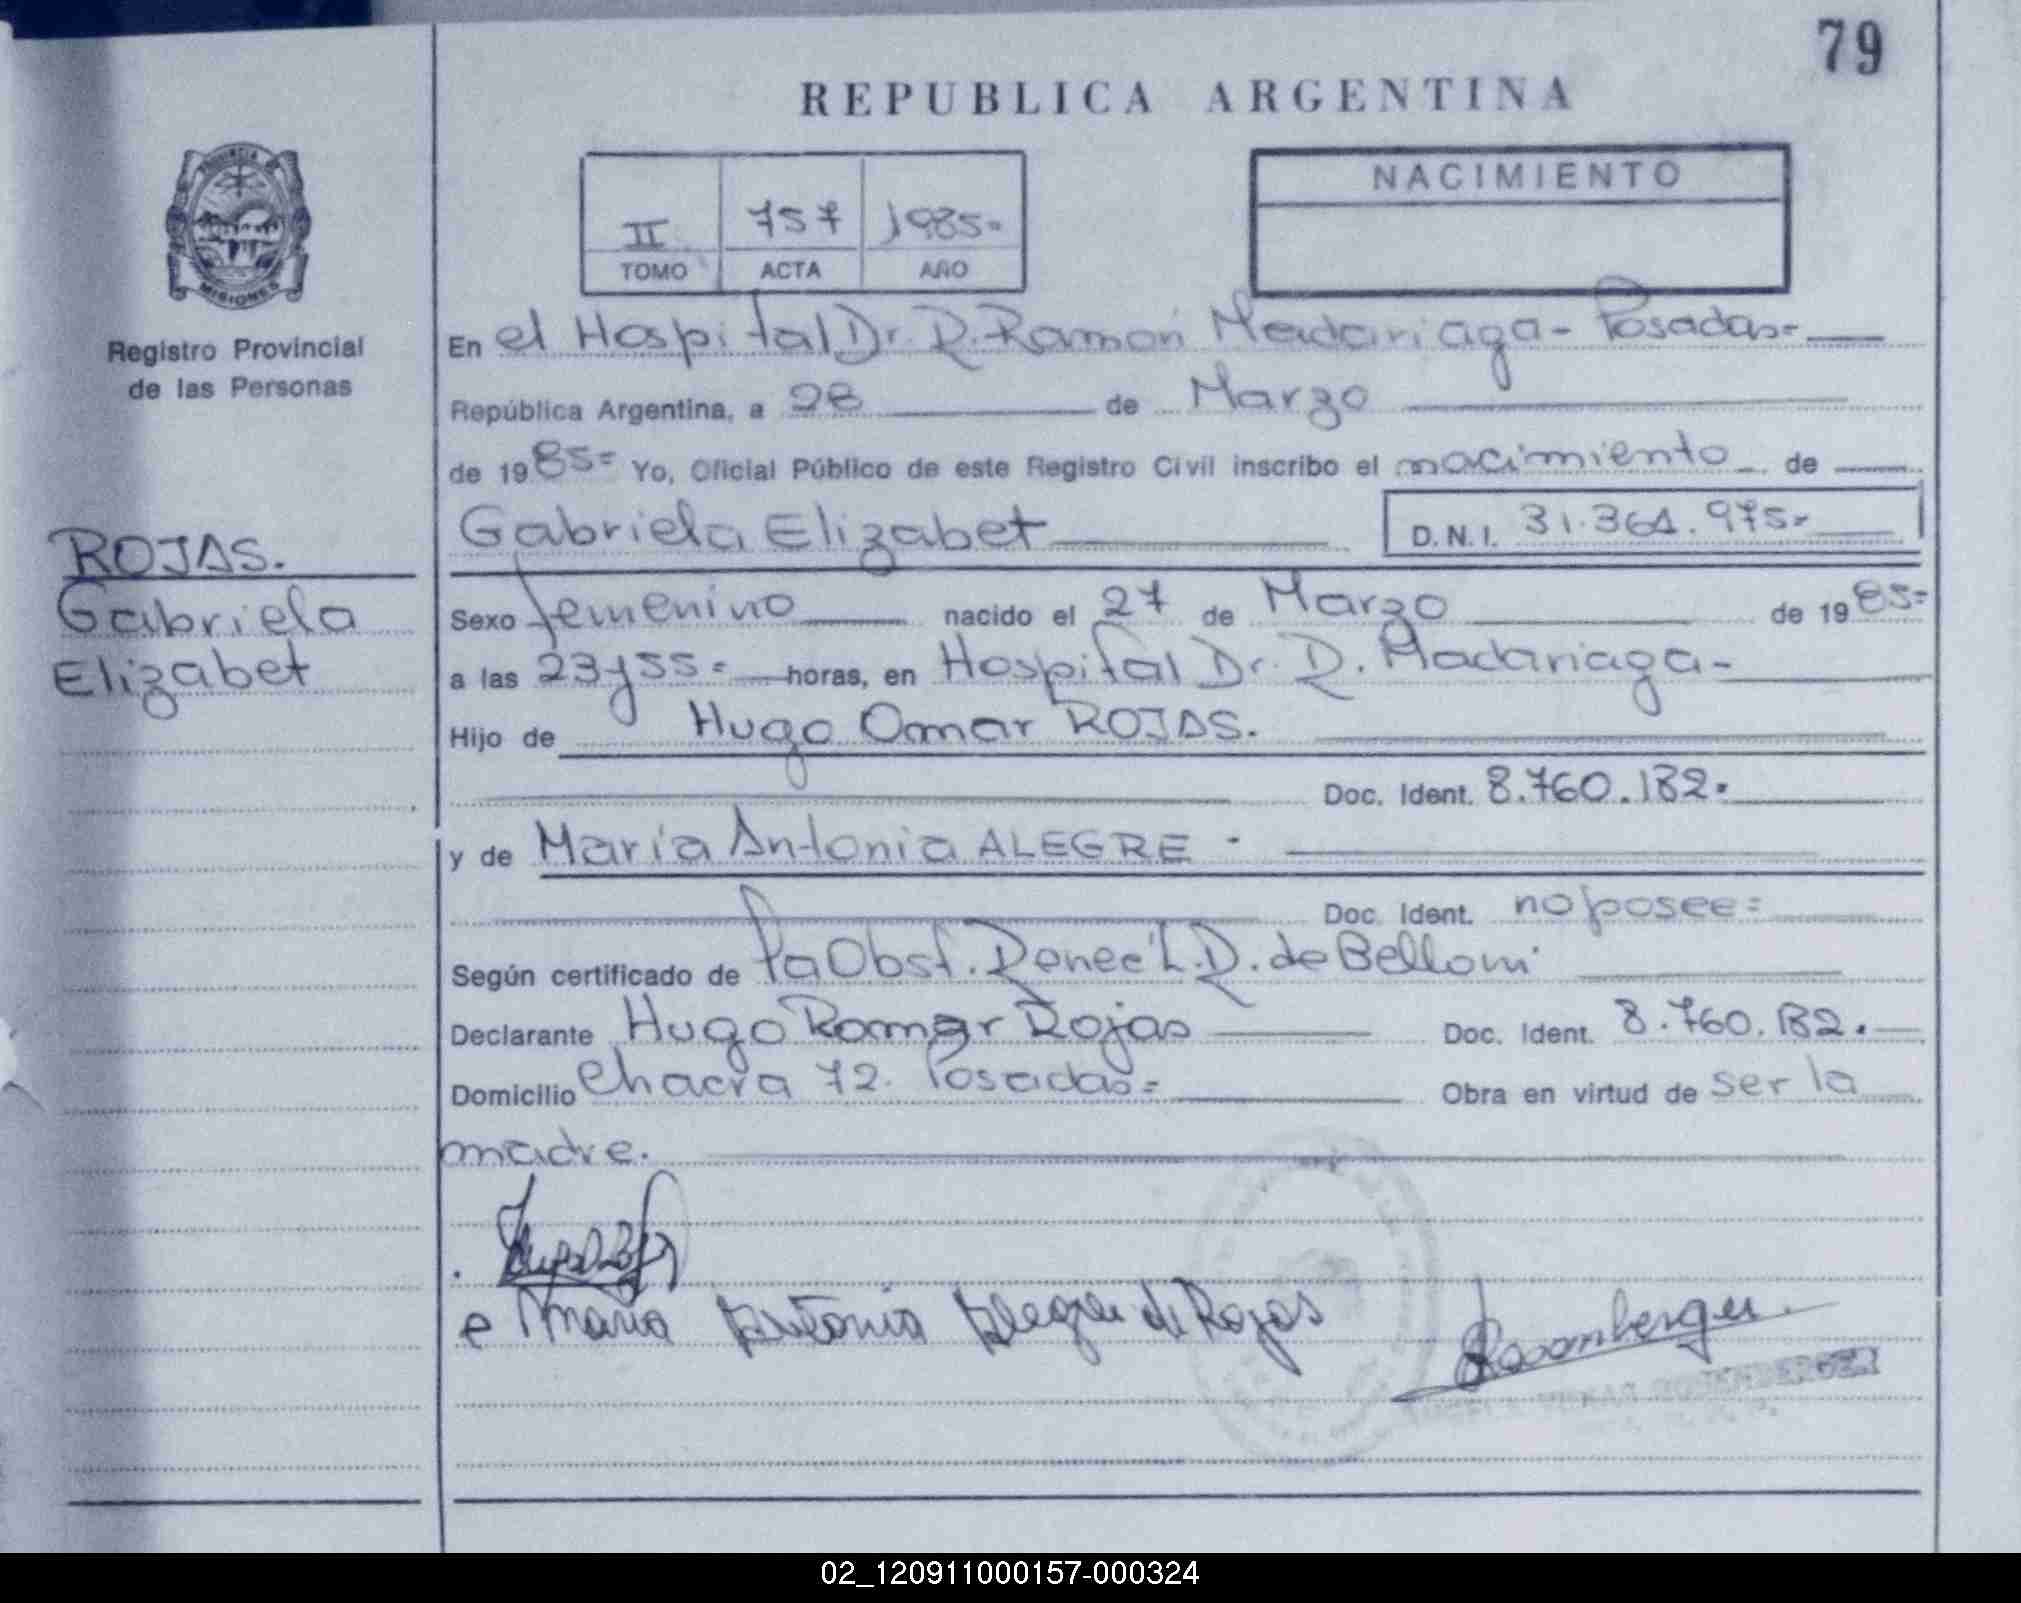 79
REPUBLICA ARGENTINA
PROVINCIA DE
MISIONES
II 757 1985-
TOMO ACTA AÑO
NACIMIENTO
Registro Provincial
de las Personas
ROJAS.
Gabriela
Elizabet
En el Hospital Dr. R. Ramón Madariaga - Posadas=
República Argentina, a 28 de Marzo
de 1985= Yo, Oficial Público de este Registro Civil inscribo el nacimiento de
Gabriela Elizabet D.N.I. 31.364.975-
Sexo femenino nacido el 27 de Marzo de 1985=
a las 23y55= horas, en Hospital Dr. R. Madariaga-
Hijo de Hugo Omar ROJAS.
Doc. Ident. 8.760.182.
y de María Antonia ALEGRE -
Doc. Ident. no posee=
Según certificado de la Obst. Renee L. R. de Belloni
Declarante Hugo Romar Rojas Doc. Ident. 8.760.182.
Domicilio Chacra 72. Posadas= Obra en virtud de ser la
madre.
e Maria Antonia Alegre de Rojas
Rosenberger
ROSENBERGER
02_120911000157-000324